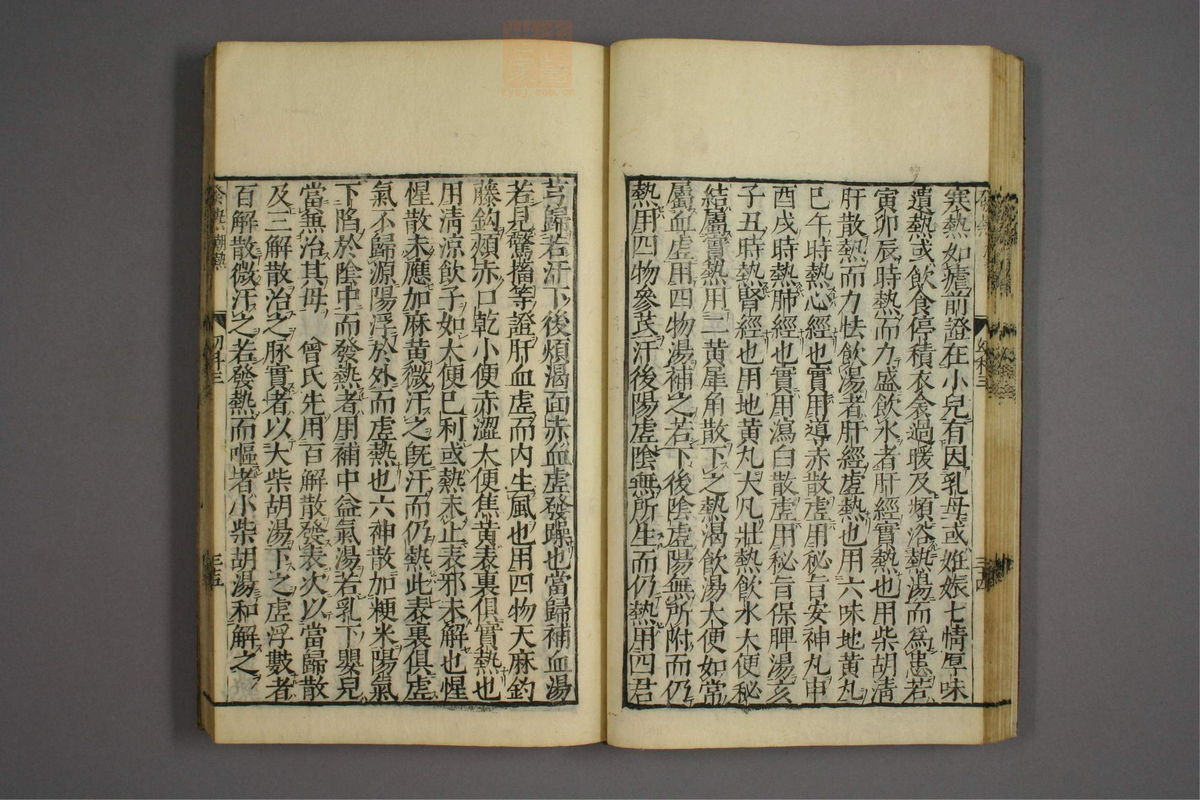 寒熱如瘧前證在小兒有因乳母或姙娠七情厚味
遺熱或飲食停積衣衾過暖及頻浴熱湯而爲患若
寅卯辰時熱而力盛飲水者肝經實熱也用柴胡清
肝散熱而力怯飲湯者肝經虚熱也用六味地黄丸
巳午時熱心經也實用導赤散虚用秘旨安神丸申
酉戌時熱肺經也實用瀉白散虚用秘旨保脾湯亥
子丑時熱腎經也用地黄丸大凡壯熱飲水大便秘
結屬實熱用二黄犀角散下之熱渴飲湯大便如常
屬血虚用四物湯補之若下後陰虚陽無所附而仍
熱用四物參芪汗後陽虚陰無所生而仍熱用四君
芎歸若汗下後煩渴面赤血虚發躁也當歸補血湯
若見驚搐等證肝血虚而内生風也用四物天麻釣
藤鈎頰赤口乾小便赤澀大便焦黄表裏俱實熱也
用清涼飲子如大便已利或熱未止表邪未解也惺
惺散未應加麻黄微汗之既汗而仍熱此表裏俱虚
氣不歸源陽浮於外而虚熱也六神散加粳米陽氣
下陷於陰中而發熱者用補中益氣湯若乳下嬰兒
當兼治其母 曾氏先用百解散發表次以當歸散
及三解散治之脉實者以大柴胡湯下之虚浮數者
百解散微汗之若發熱而嘔者小柴胡湯和解之
潮熱
幼科三
三十五